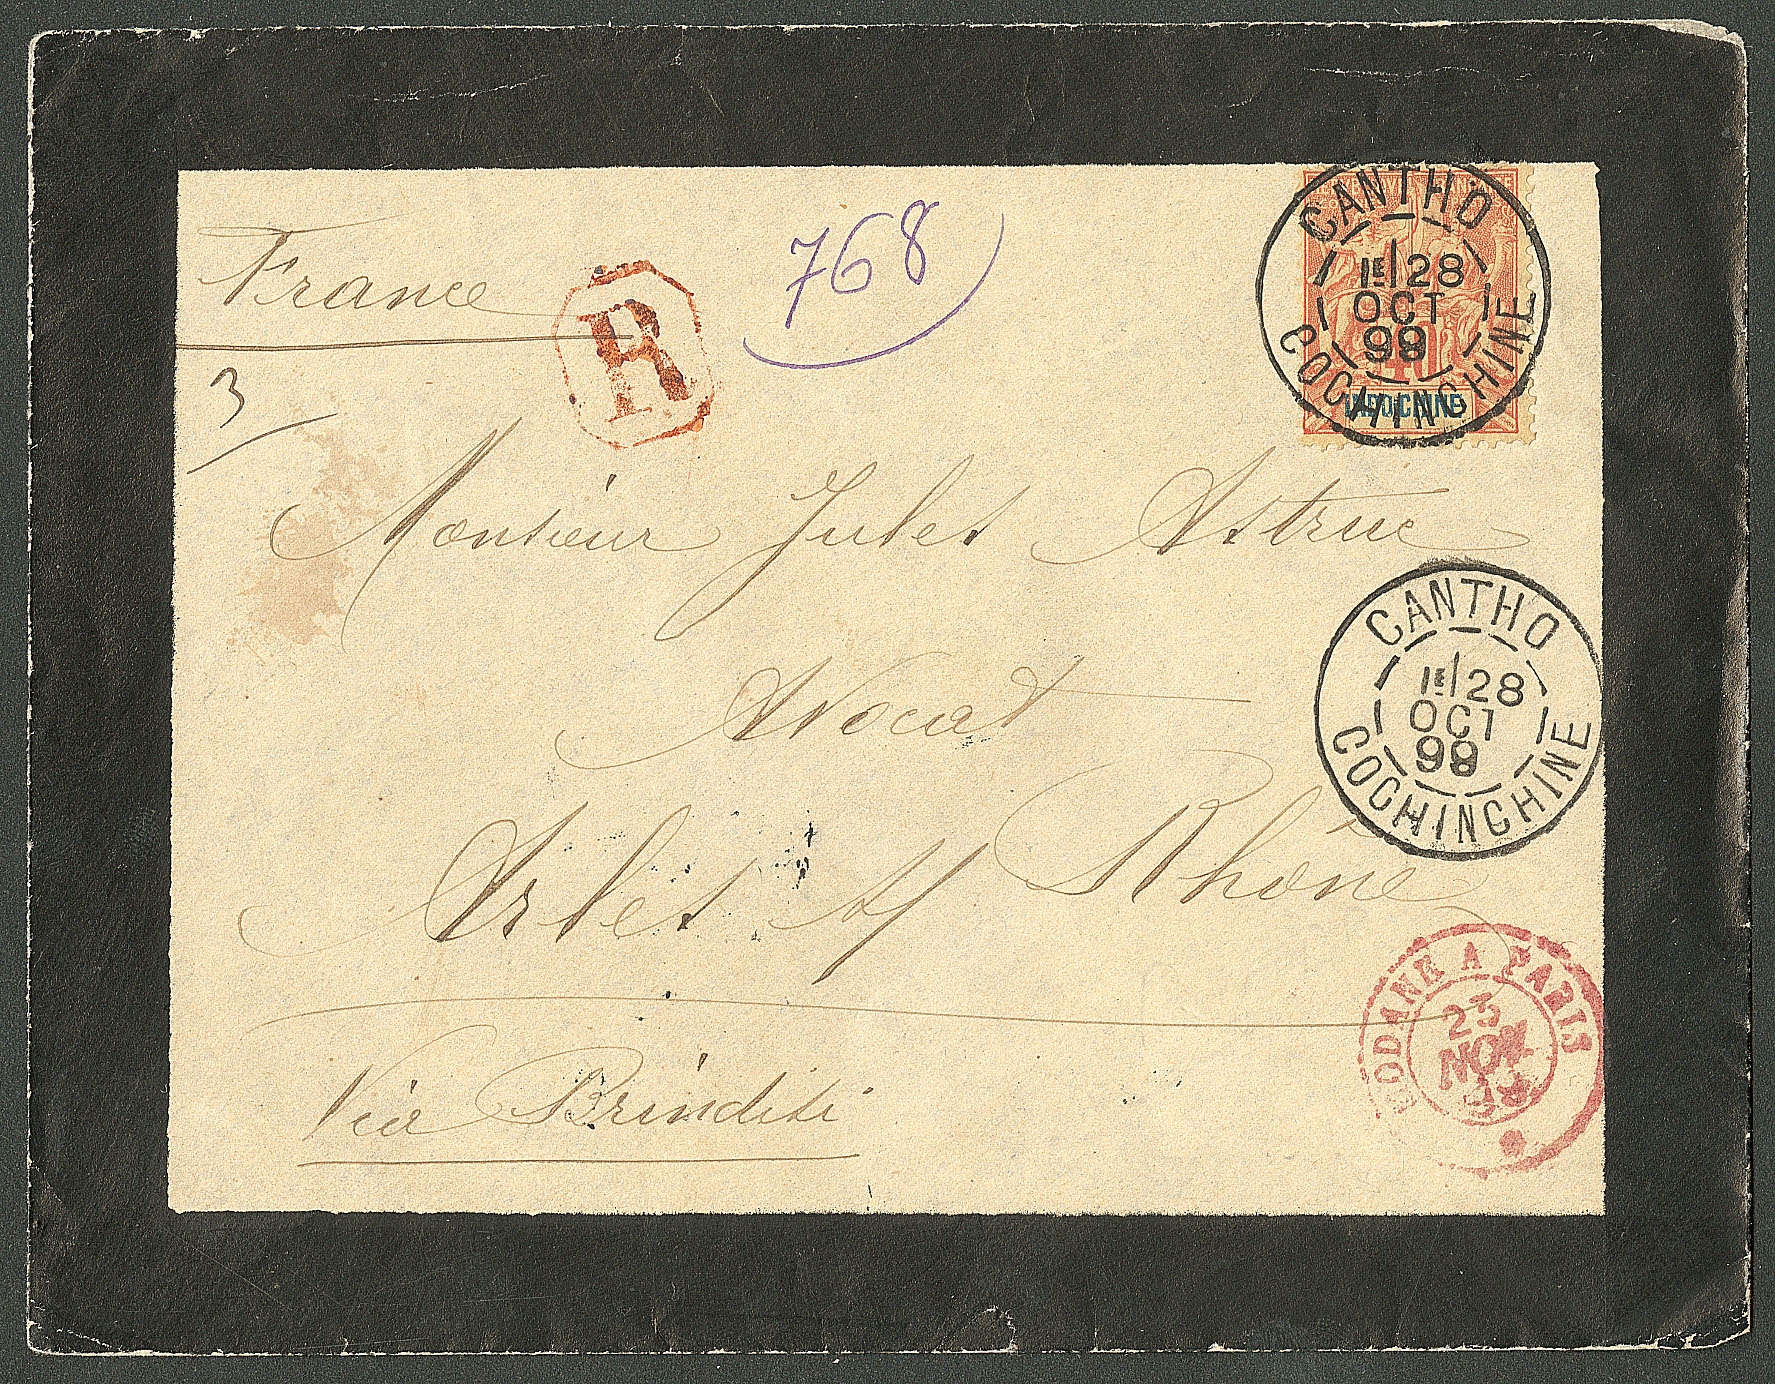 France
R
768
3
CANTHO
1E/28
OCT
99
COCHINCHINE
40
INDO-CHINE
Monsieur Jules Astruc
Avocat
Arles s/ Rhône
Via Brindisi
CANTHO
1E/28
OCT
99
COCHINCHINE
MODANE A PARIS
23
NOV